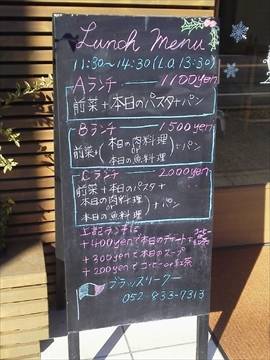 Lunch Menu
11:30~14:30 (L.O.13:30)
Aランチ 1100yen
前菜+本日のパスタ+パン
Bランチ 1500yen
前菜+(本日の肉料理
or
本日の魚料理)+パン
Cランチ 2000yen
前菜+本日のパスタ+
(本日の肉料理
or
本日の魚料理)+パン
上記ランチに
+400yenで本日のデザートとコーヒーor紅茶
+300yenで本日のスープ
+200yenでコーヒーor紅茶
052-833-7313